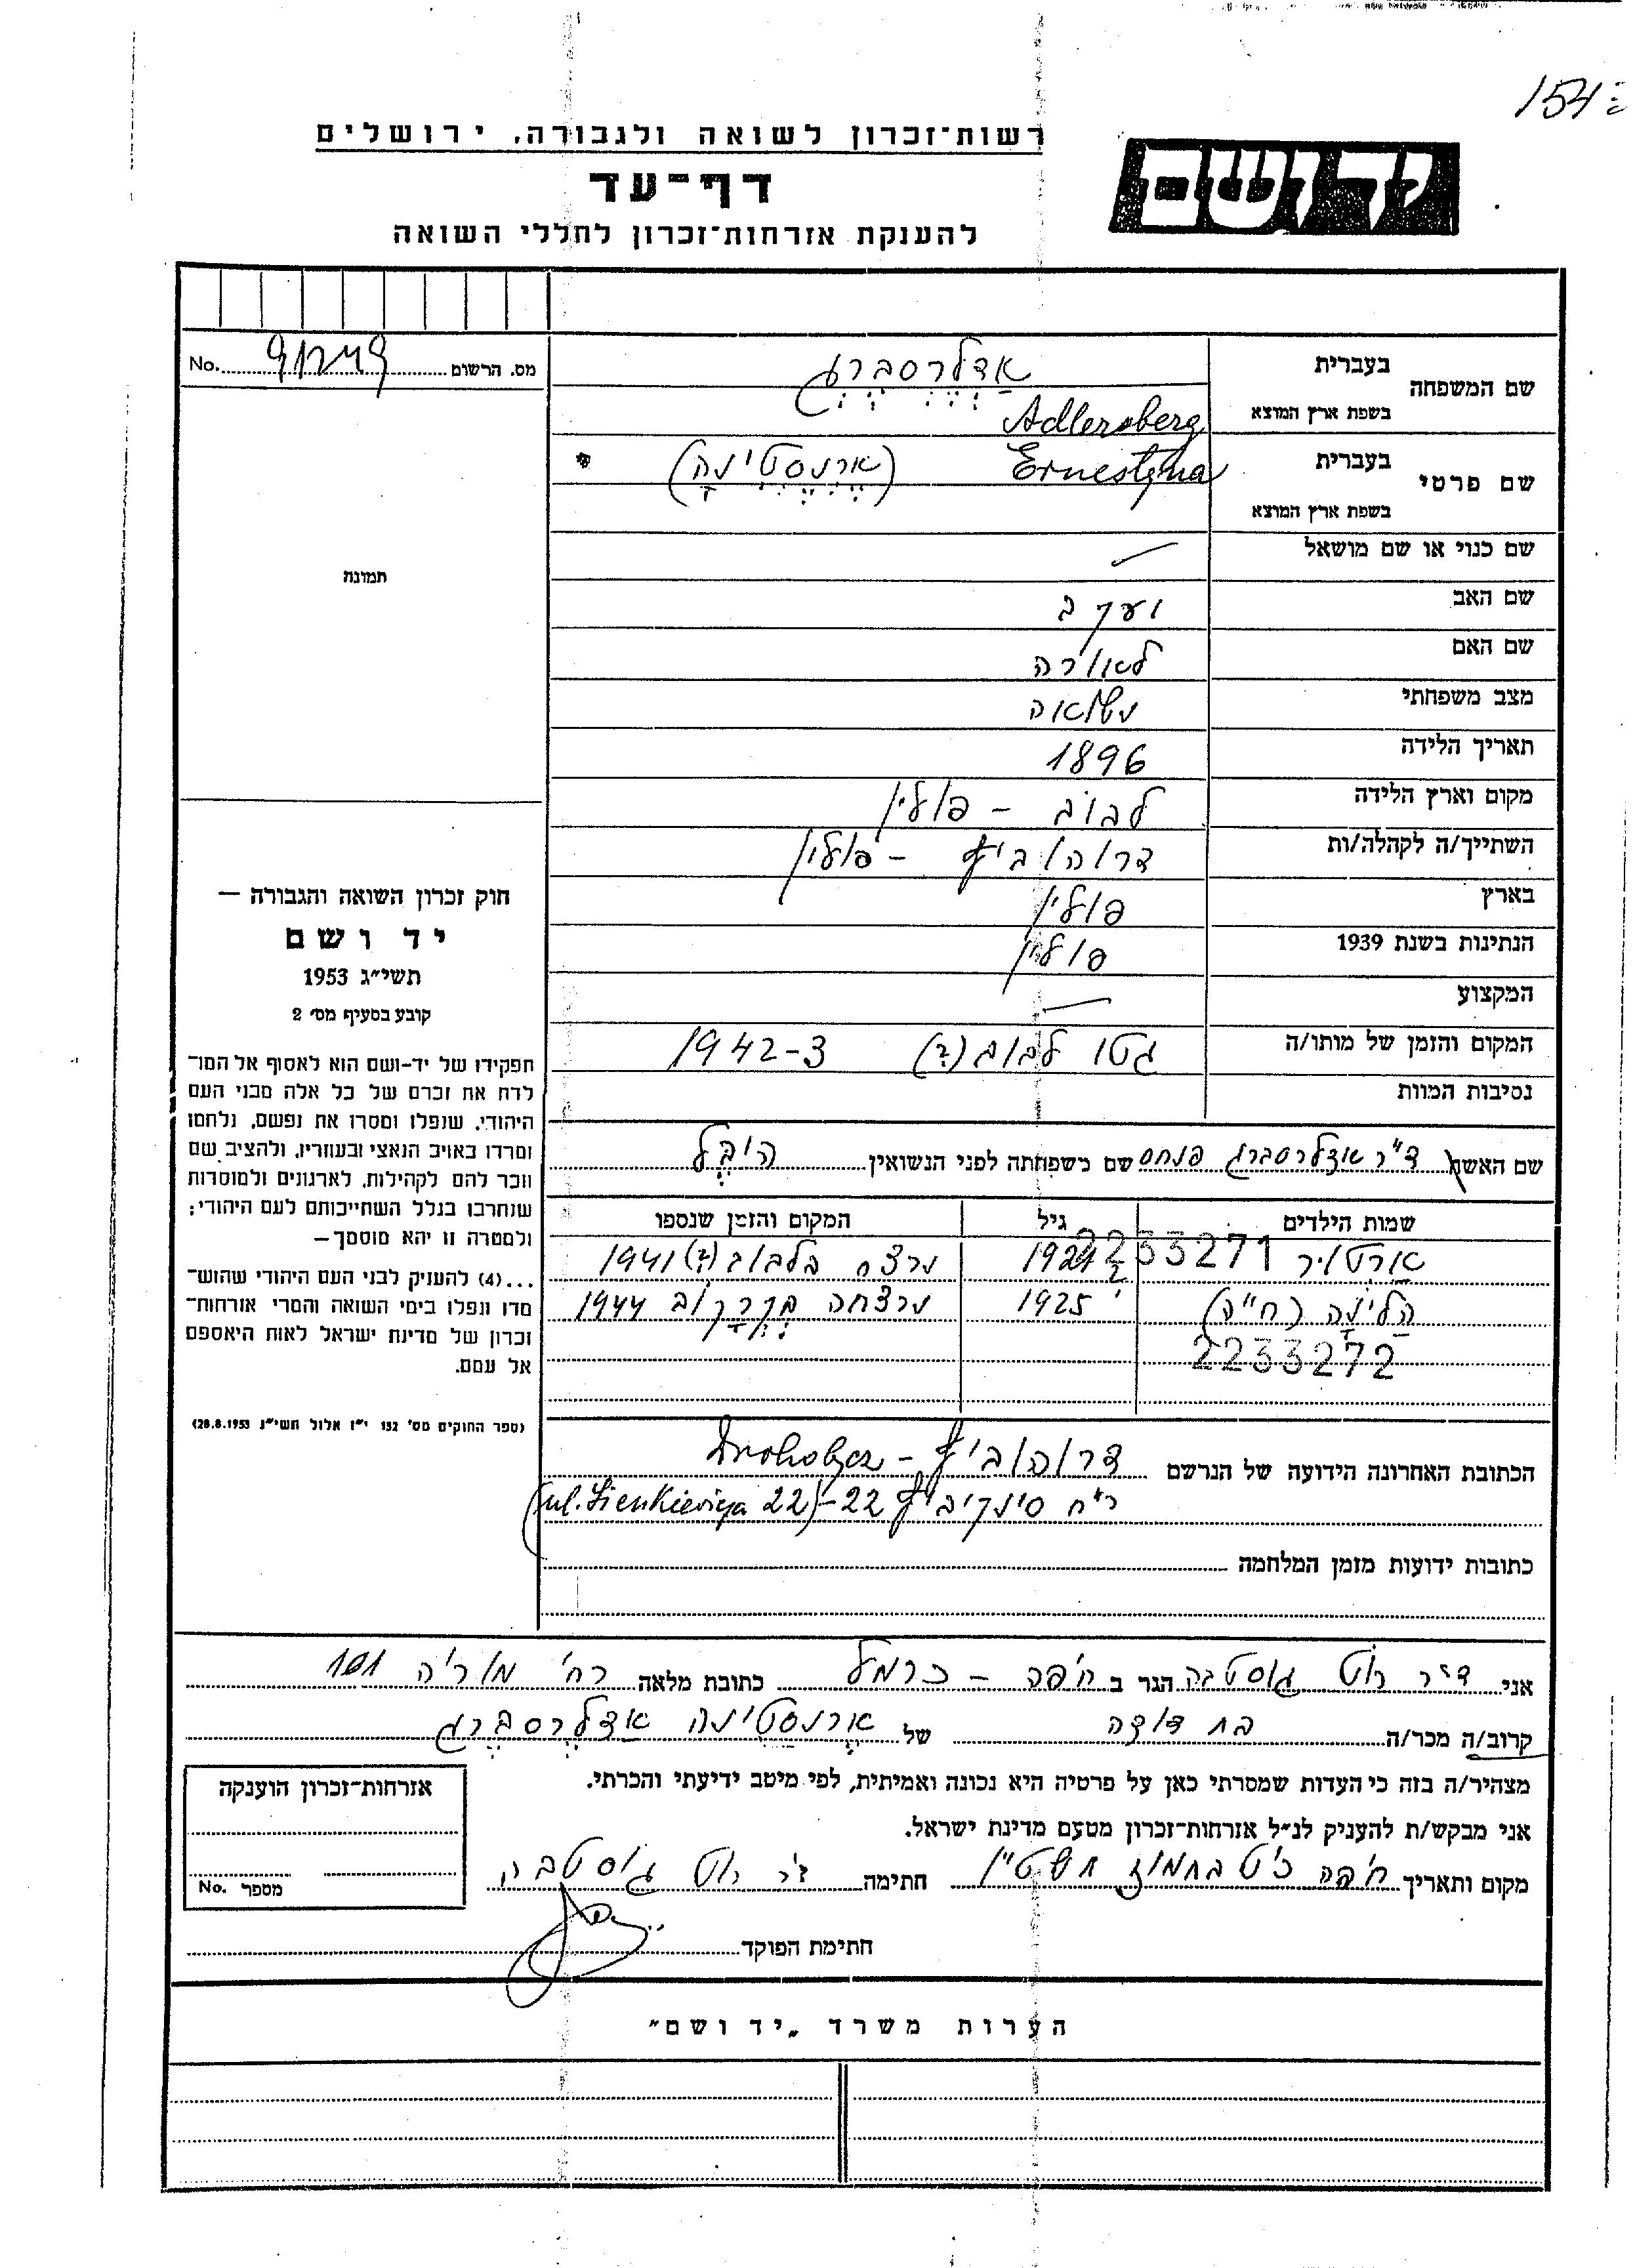 רשות־זכרון לשואה ולגבורה, ירושלים
דף־עד
להענקת אזרחות־זכרון לחללי השואה
יד ושם
מס. הרשום No.
שם המשפחה
בעברית
אַדְלֶרְסְבֶּרְג
בשפת ארץ המוצא
Adlersberg
שם פרטי
בעברית
Ernestyna (אֶרְנֶסְטִינָה)
בשפת ארץ המוצא
שם כנוי או שם מושאל
שם האב יעקב
שם האם לאורה
מצב משפחתי נשואה
תאריך הלידה 1896
מקום וארץ הלידה לבוב – פולין
השתייך/ה לקהלה/ות דרוהוביץ – פולין
בארץ פולין
הנתינות בשנת 1939 פולין
המקצוע
המקום והזמן של מותו/ה גטו לבוב (?) 1942-3
נסיבות המוות
שם האשה ד"ר אדלרסברג פנחס שם משפחתה לפני הנשואין הובל
שמות הילדים גיל המקום והזמן שנספו
ארטור נרצח בלבוב (?) 1941
2233271
הלינה (ח"ה) 1925 נרצחה בקרקוב 1944
2233272
הכתובת האחרונה הידועה של הנרשם דרוהוביץ – Drohobycz
רח' סינקיביץ 22 – (ul. Sienkiewicza 22
כתובות ידועות מזמן המלחמה
תמונה
חוק זכרון השואה והגבורה —
יד ושם
תשי״ג 1953
קובע בסעיף מס׳ 2
תפקידו של יד-ושם הוא לאסוף אל המו־
לדת את זכרם של כל אלה מבני העם
היהודי, שנפלו ומסרו את נפשם, נלחמו
ומרדו באויב הנאצי ובעוזריו, ולהציב שם
וזכר להם לקהילות, לארגונים ולמוסדות
שנחרבו בגלל השתייכותם לעם היהודי;
ולמטרה זו יהא מוסמך—
...(4) להעניק לבני העם היהודי שהוש־
מדו ונפלו בימי השואה והמרי אזרחות־
זכרון של מדינת ישראל לאות היאספם
אל עמם.
(ספר החוקים מס׳ 132 י״ז אלול תשי״ג 28.8.1953)
אני ד"ר רוט גוסטבה הגר ב חיפה – כרמל כתובת מלאה רח' מוריה 101
קרוב/ה מכר/ה בת דודה של ארנסטינה אדלרסברג
מצהיר/ה בזה כי העדות שמסרתי כאן על פרטיה היא נכונה ואמיתית, לפי מיטב ידיעתי והכרתי.
אני מבקש/ת להעניק לנ״ל אזרחות־זכרון מטעם מדינת ישראל.
מקום ותאריך חיפה כ"ט בתמוז תשט"ו חתימה ד"ר רוט גוסטבה
חתימת הפוקד
אזרחות־זכרון הוענקה
מספר No.
הערות משרד „יד ושם״